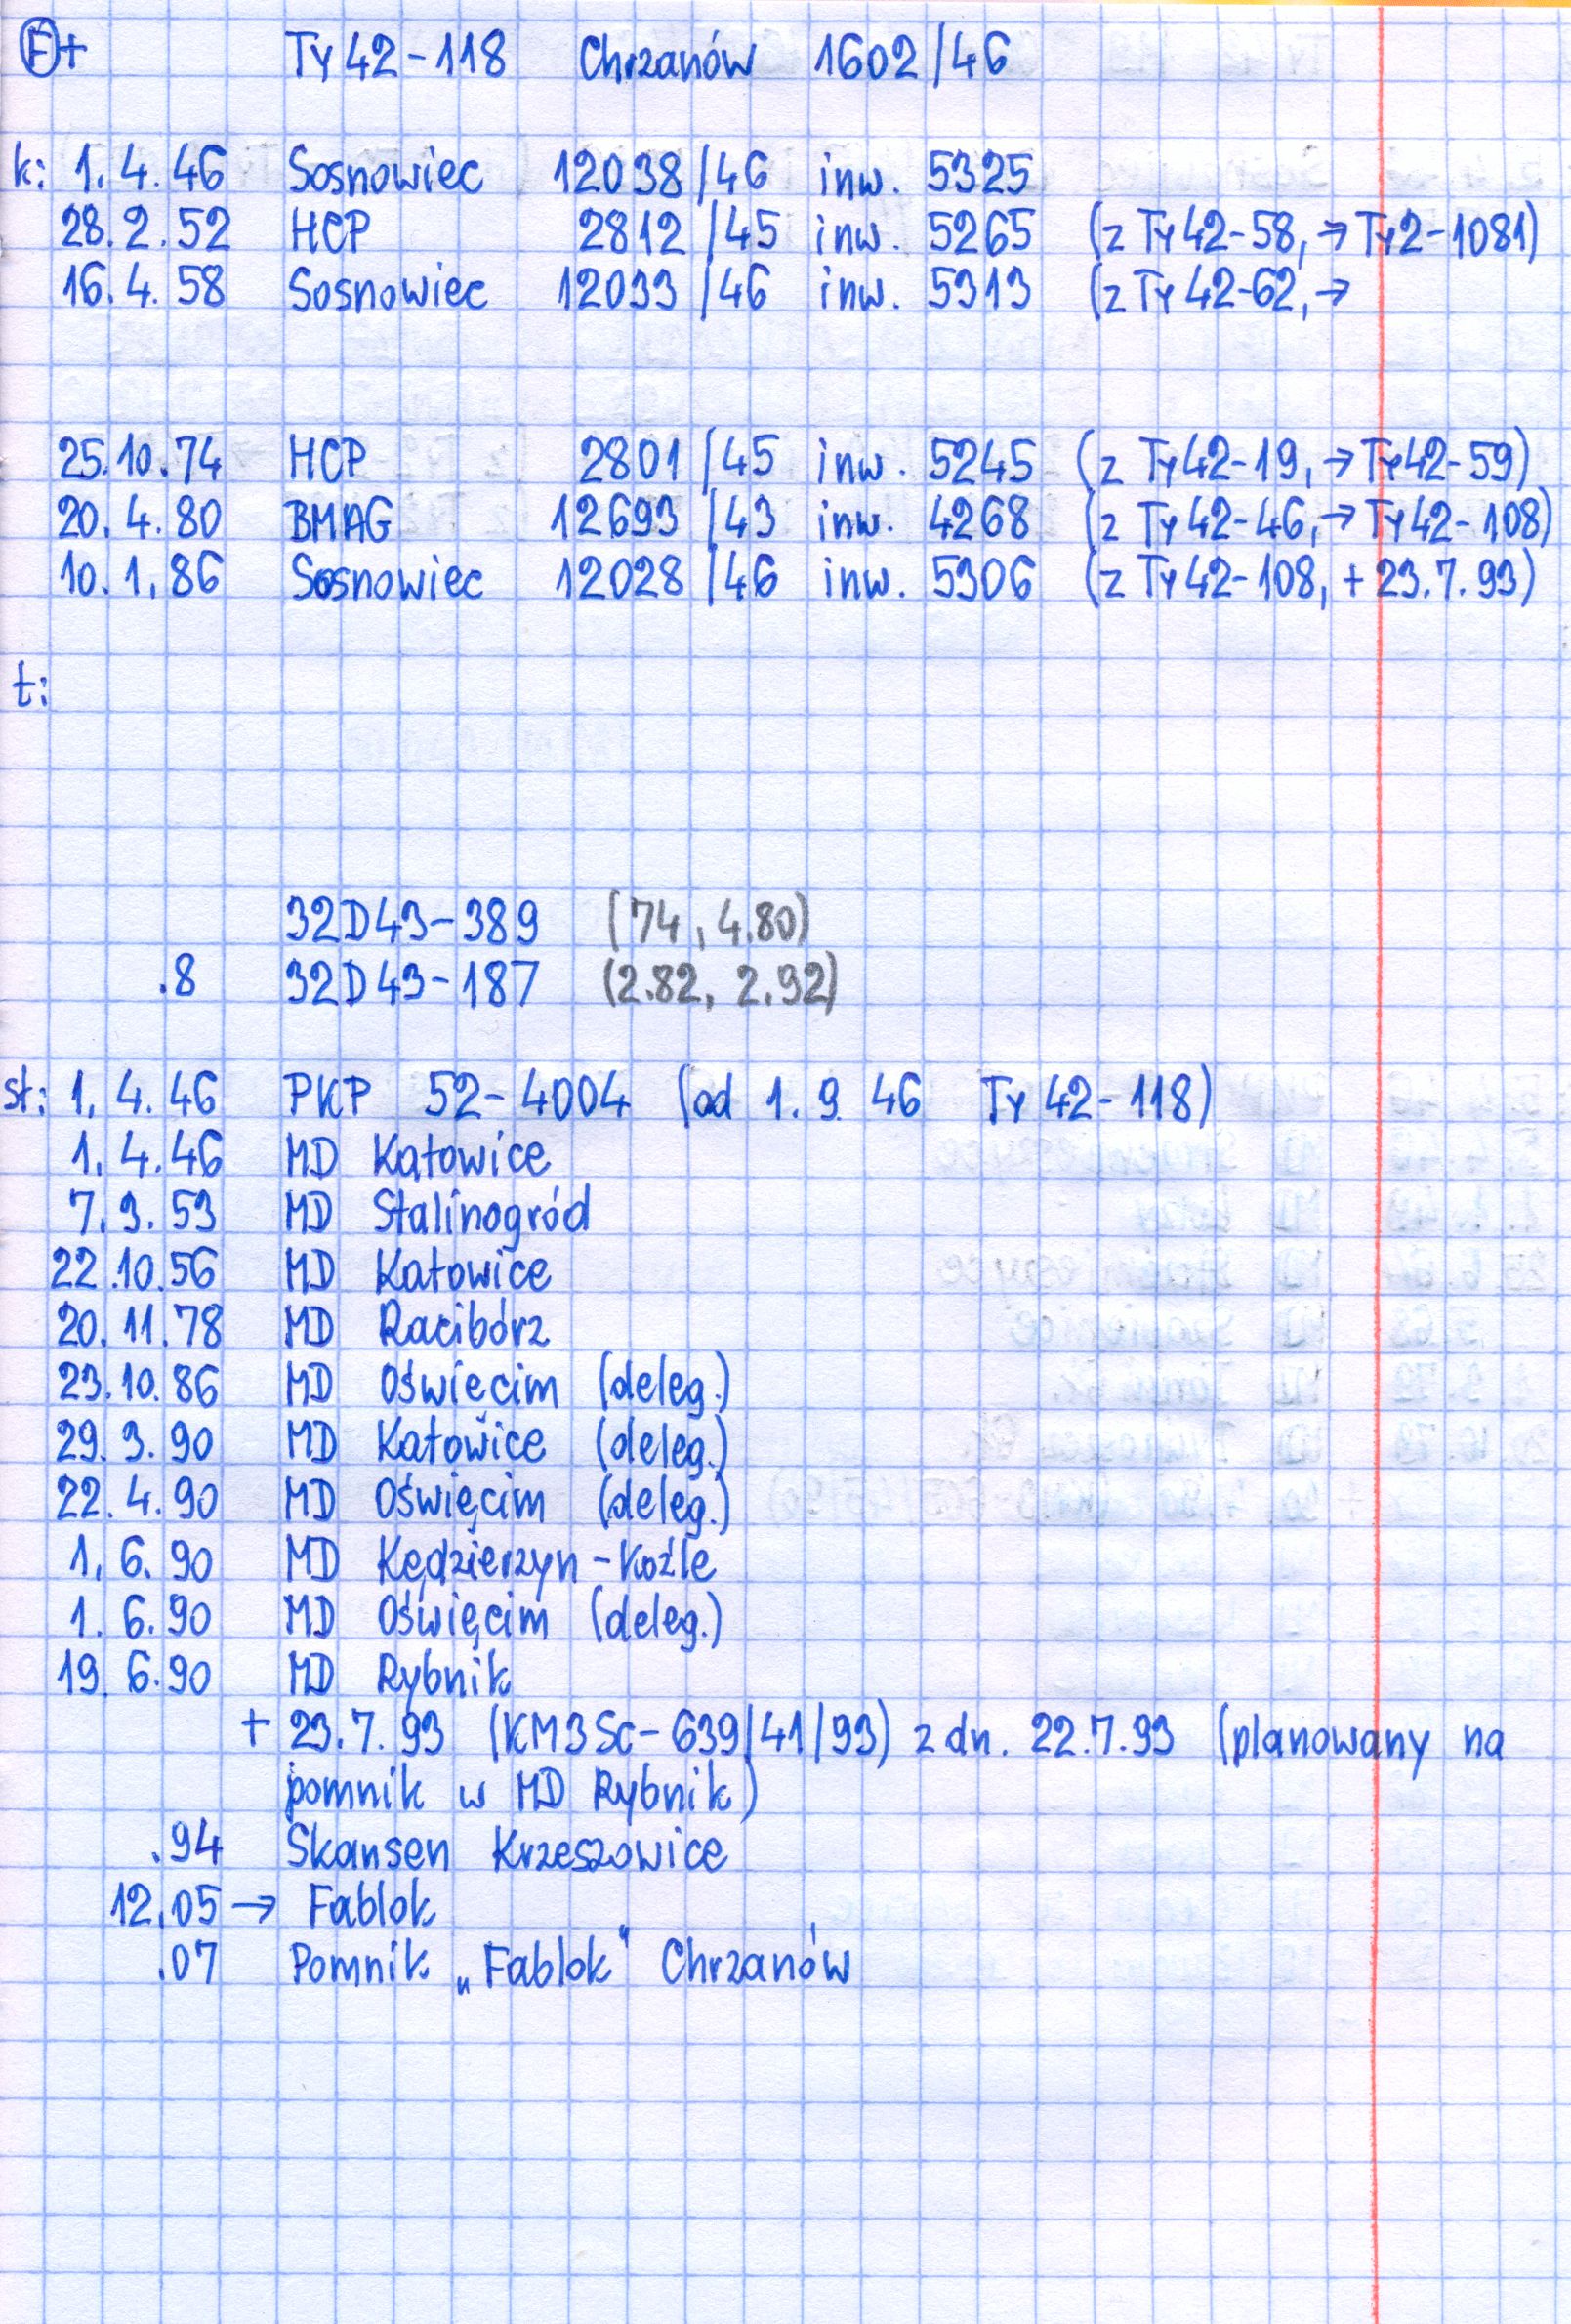 Ⓕ+ Ty42-118 Chrzanów 1602/46
k: 1.4.46 Sosnowiec 12038/46 inw. 5325
28.2.52 HCP 2812/45 inw. 5265 (z Ty42-58, → Ty2-1081)
16.4.58 Sosnowiec 12033/46 inw. 5313 (z Ty42-62, →
25.10.74 HCP 2801/45 inw. 5245 (z Ty42-19, → Ty42-59)
20.4.80 BMAG 12693/43 inw. 4268 (z Ty42-46, → Ty42-108)
10.1.86 Sosnowiec 12028/46 inw. 5306 (z Ty42-108, + 23.7.93)
t:
32D43-389 (74, 4.80)
.8 32D43-187 (2.82, 2.92)
st: 1.4.46 PKP 52-4004 (od 1.9.46 Ty42-118)
1.4.46 MD Katowice
7.3.53 MD Stalinogród
22.10.56 MD Katowice
20.11.78 MD Racibórz
23.10.86 MD Oświęcim (deleg.)
29.3.90 MD Katowice (deleg.)
22.4.90 MD Oświęcim (deleg.)
1.6.90 MD Kędzierzyn-Koźle
1.6.90 MD Oświęcim (deleg.)
19.6.90 MD Rybnik
+ 23.7.93 (KM3Sc-639/41/93) z dn. 22.7.93 (planowany na
pomnik w MD Rybnik)
.94 Skansen Krzeszowice
12.05 → Fablok
.07 Pomnik „Fablok" Chrzanów